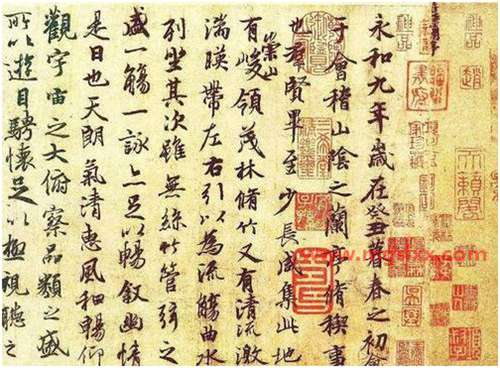 神品
趙
天籟閣
永和九年歲在癸丑暮春之初會
于會稽山陰之蘭亭脩稧事
也羣賢畢至少長咸集此地
有崇山峻領茂林脩竹又有清流激
湍暎帶左右引以為流觴曲水
列坐其次雖無絲竹管弦之
盛一觴一詠亦足以暢敘幽情
是日也天朗氣清惠風和暢仰
觀宇宙之大俯察品類之盛
所以遊目騁懷足以極視聽之